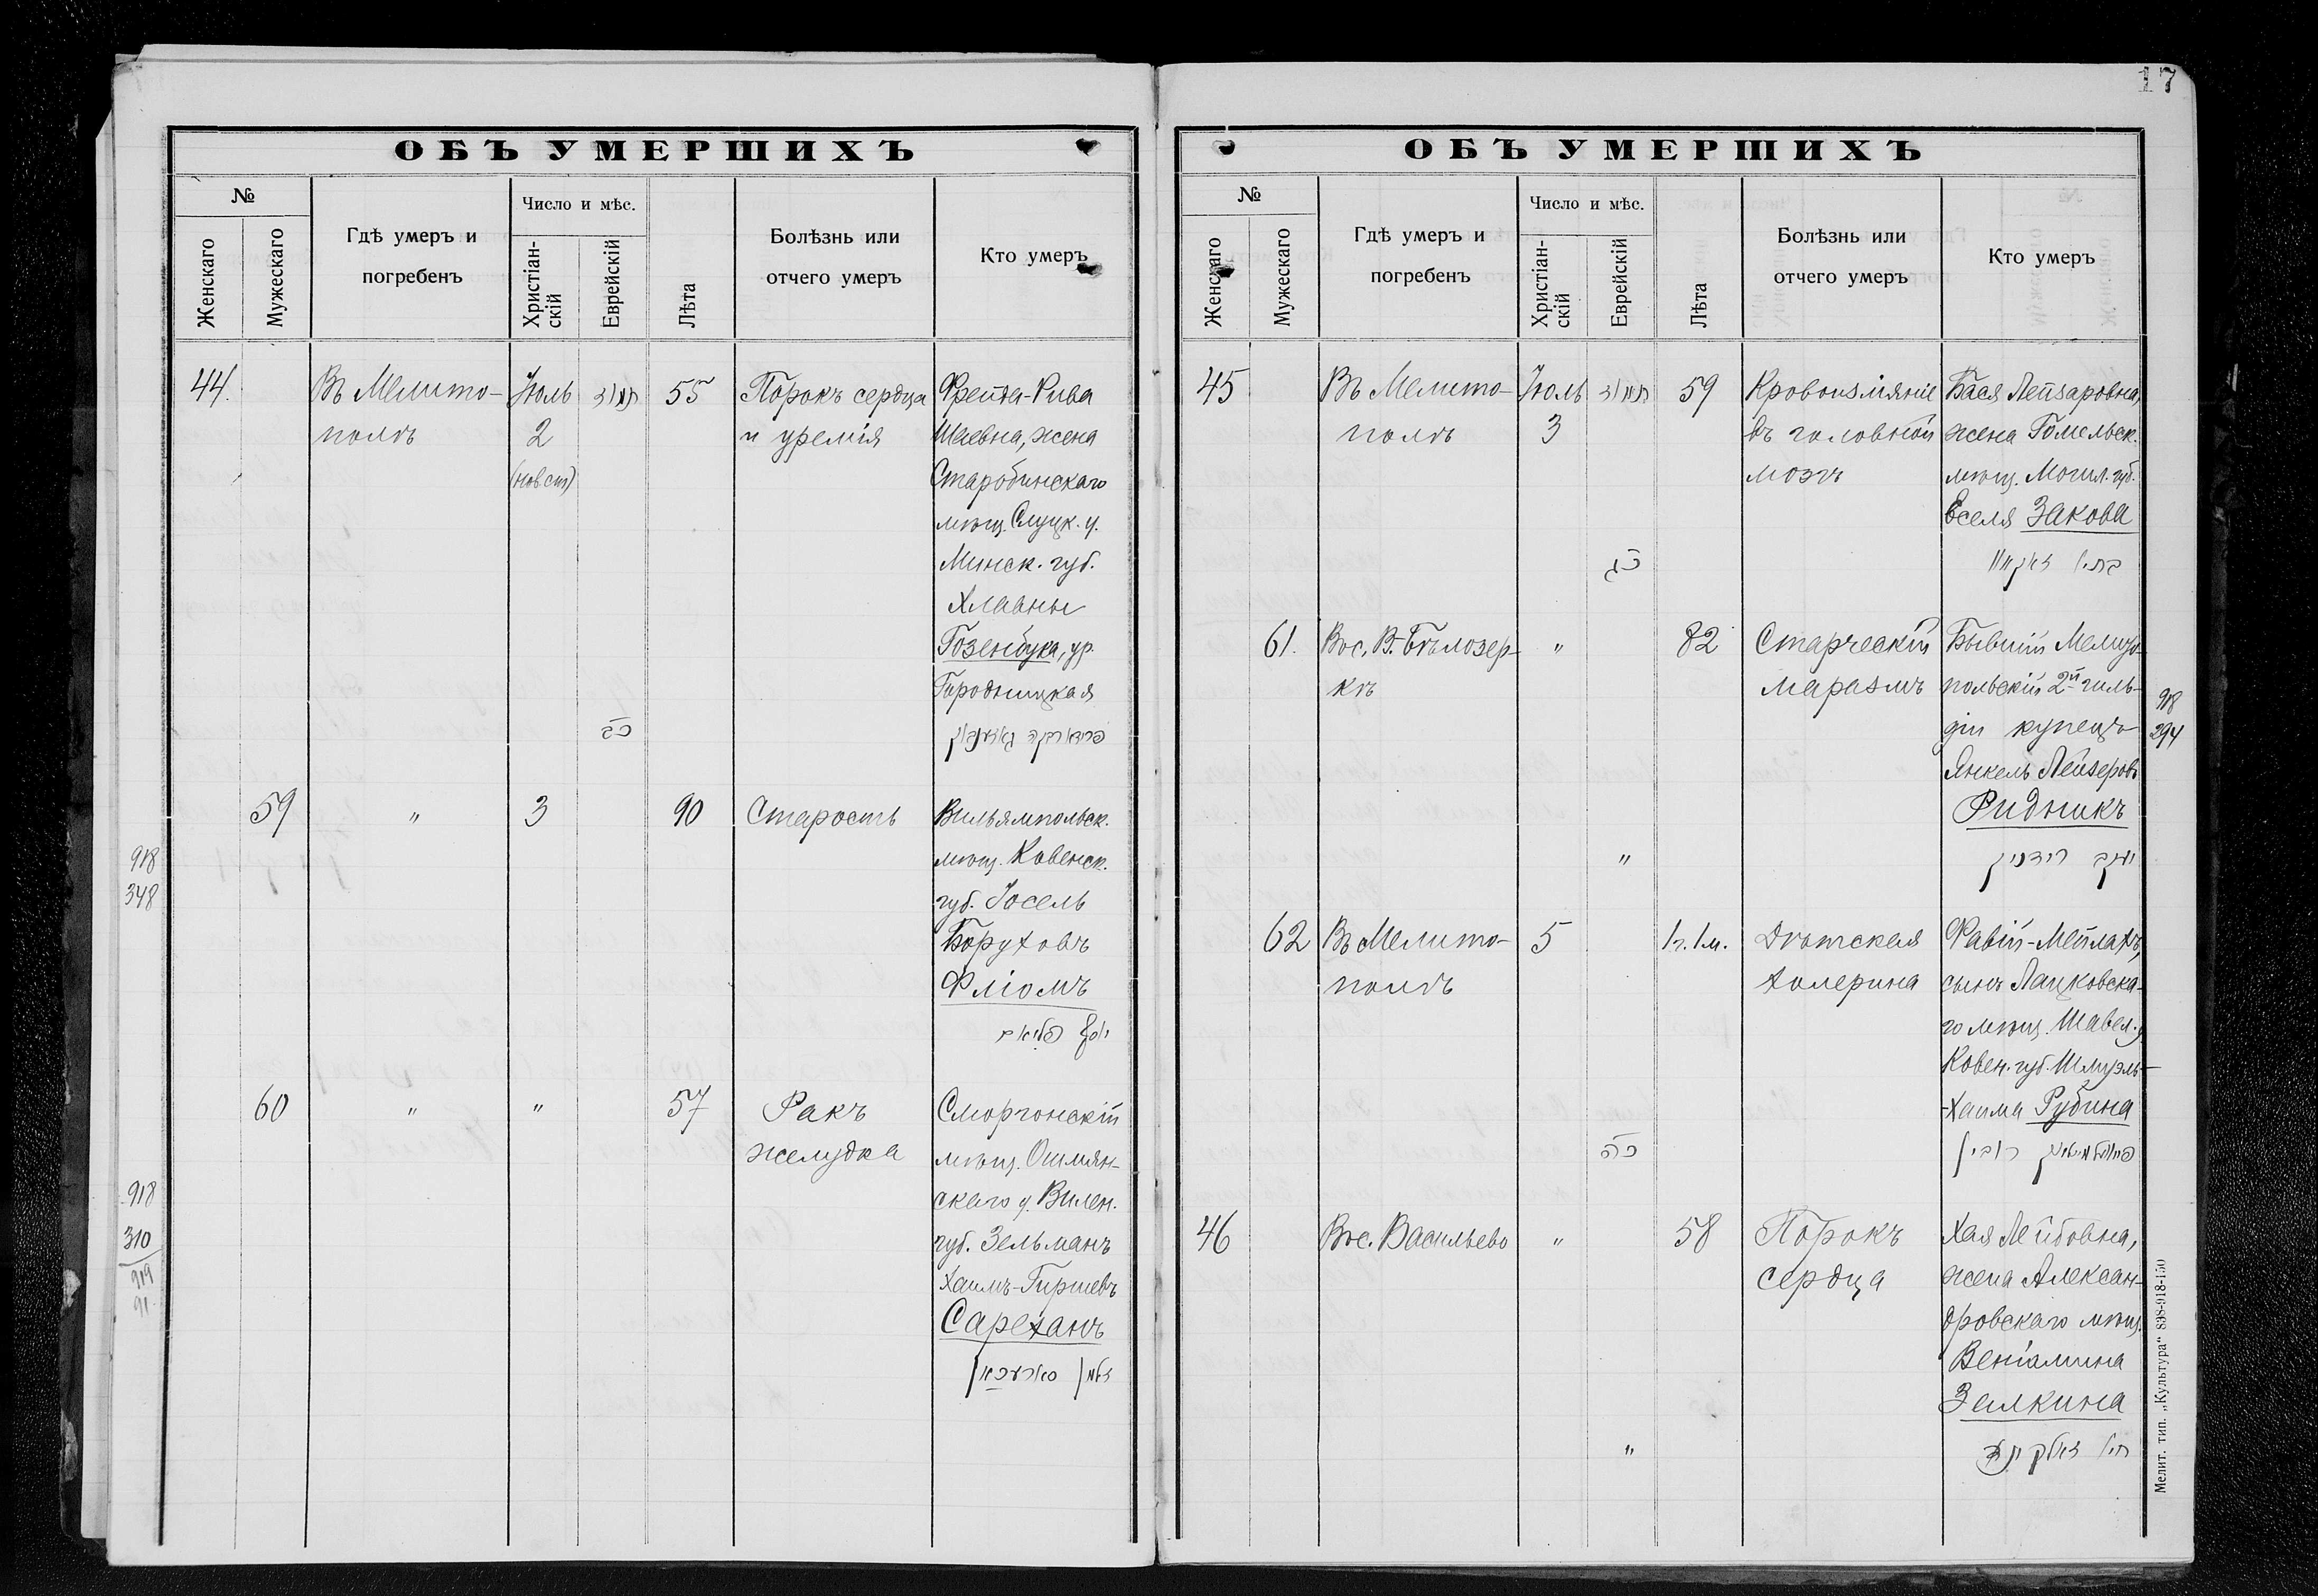 17
ОБЪ УМЕРШИХЪ
№
Женскаго
Мужескаго
Гдѣ умеръ и
погребенъ
Число и мѣс.
Христіан-
скій
Еврейскій
Лѣта
Болѣзнь или
отчего умеръ
Кто умеръ
44.
Въ Мелито-
полѣ
Іюль
2
(нов ст)
תמוז
כב
55
Порокъ сердца
и уремія
Фрейда-Рива
Шаевна, жена
Старобинскаго
мѣщ. Слуцк. у.
Минск. губ.
Хлавны
Гозенбука, ур.
Городницкая
59
"
3
90
Старость
Вильямпольск.
мѣщ. Ковенск.
губ. Іосель
Боруховъ
Фліомъ
918
348
60
"
"
57
Ракъ
желудка
Сморгонскій
мѣщ. Ошмян-
скаго у. Вилен.
губ. Зельманъ
Хаимъ-Гиршевъ
Сареханъ
918
310
919
91
ОБЪ УМЕРШИХЪ
№
Женскаго
Мужескаго
Гдѣ умеръ и
погребенъ
Число и мѣс.
Христіан-
скій
Еврейскій
Лѣта
Болѣзнь или
отчего умеръ
Кто умеръ
45
Въ Мелито-
полѣ
Іюль
3
תמוז
כג
59
Кровоизліяніе
въ головной
мозгъ
Бася Лейзаровна,
жена Гомельск.
мѣщ. Могил. губ.
Еселя Закова
61.
Въ с. В.-Бѣлозер-
кѣ
"
"
82
Старческій
маразмъ
Бывшій Мелито-
польскій 2й гиль-
діи купецъ
Янкель Лейзеровъ
Ридникъ
יעקב רידניק
918
294
62
Въ Мелито-
полѣ
5
כה
1 г. 1 м.
Дѣтская
холерина
Фавій-Мейлахъ,
сынъ Лацковска-
го мѣщ. Шавел. у.
Ковен. губ. Шмуэль-
-Хаима Рубина
46
Въ с. Васильево
"
"
58
Порокъ
сердца
Хая Лейбовна,
жена Алексан-
дровскаго мѣщ.
Веніамина
Зелкина
Мелит. тип. „Культура“ 898-918-150